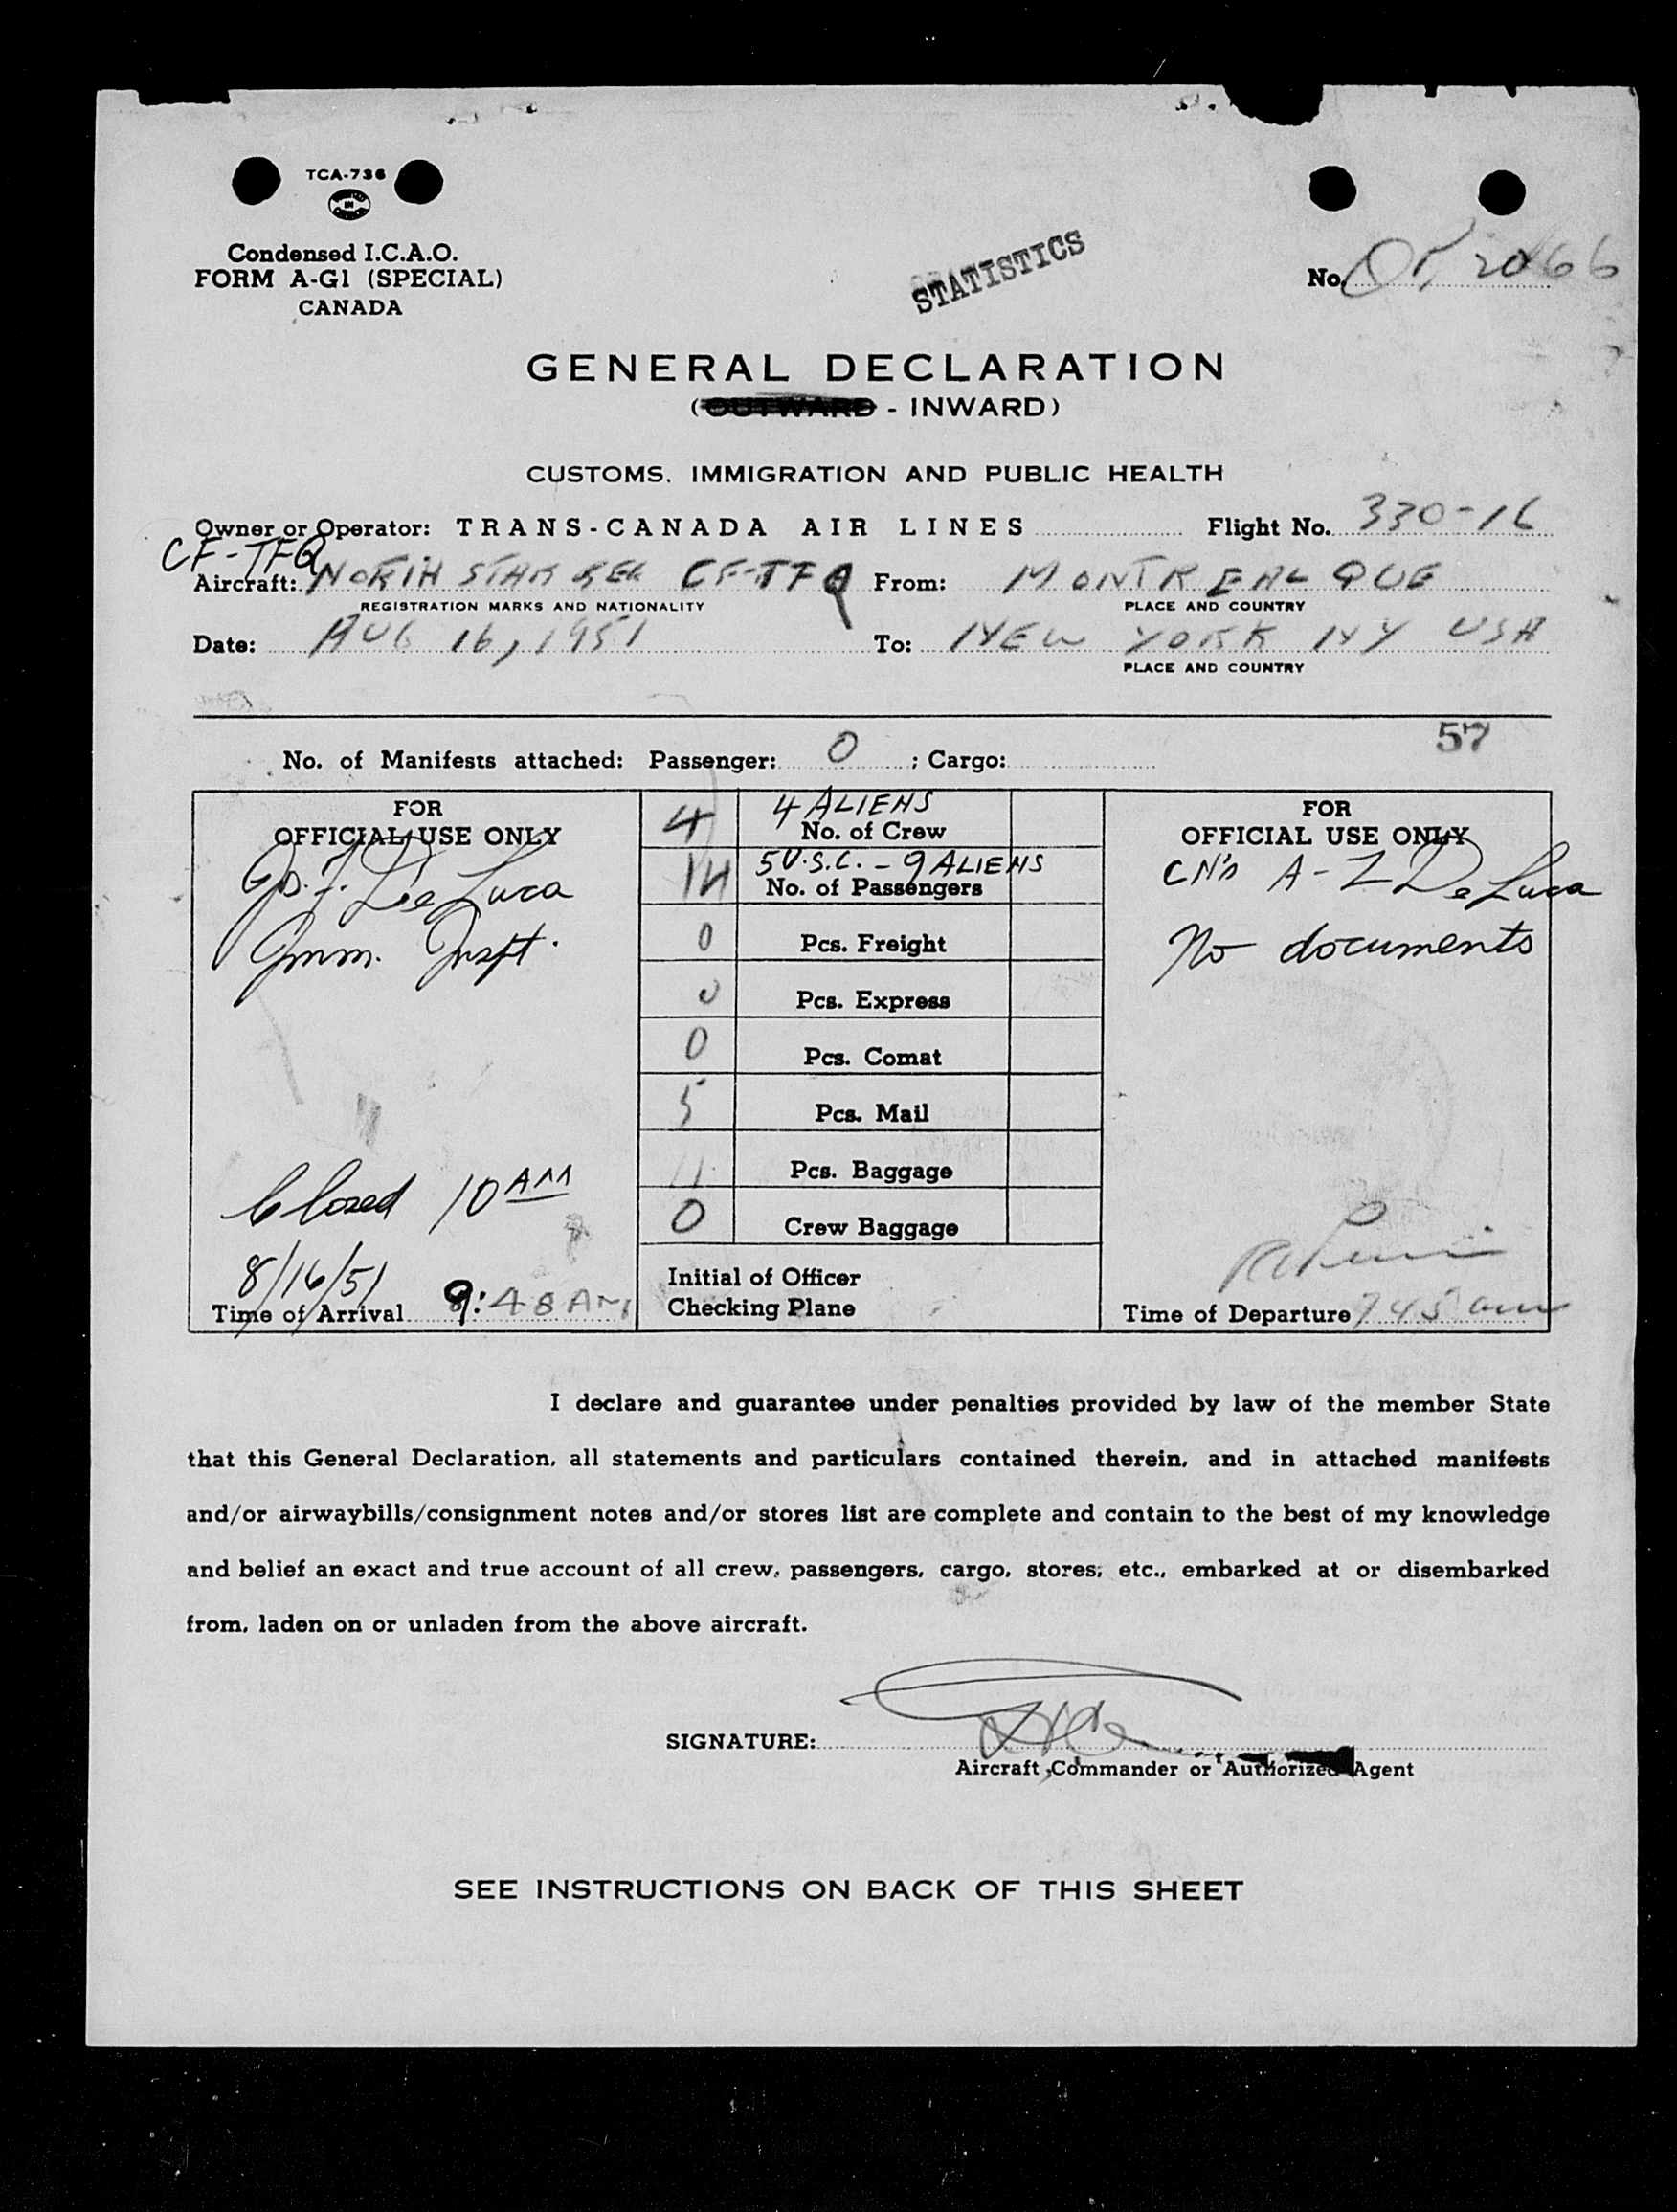 TCA-736
Condensed I.C.A.O.
FORM A-G1 (SPECIAL)
CANADA
STATISTICS
No.
GENERAL DECLARATION
(OUTWARD - INWARD)
CUSTOMS, IMMIGRATION AND PUBLIC HEALTH
Owner or Operator: TRANS-CANADA AIR LINES Flight No. 330-16
CF-TFQ
Aircraft: NORTH STAR REG CF-TFQ From: MONTREAL QUE
REGISTRATION MARKS AND NATIONALITY PLACE AND COUNTRY
Date: AUG 16, 1951 To: NEW YORK NY USA
PLACE AND COUNTRY
57
No. of Manifests attached: Passenger: 0 ; Cargo:
FOR
OFFICIAL USE ONLY
Jos. F. De Luca
Imm. Inspt.
Closed 10 AM
8/16/51
Time of Arrival 9:48 AM
4 4 ALIENS
No. of Crew
14 5 U.S.C. - 9 ALIENS
No. of Passengers
0 Pcs. Freight
0 Pcs. Express
0 Pcs. Comat
5 Pcs. Mail
11 Pcs. Baggage
0 Crew Baggage
Initial of Officer
Checking Plane
FOR
OFFICIAL USE ONLY
CN's A-Z De Luca
No documents
Time of Departure 745 am
I declare and guarantee under penalties provided by law of the member State
that this General Declaration, all statements and particulars contained therein, and in attached manifests
and/or airwaybills/consignment notes and/or stores list are complete and contain to the best of my knowledge
and belief an exact and true account of all crew, passengers, cargo, stores, etc., embarked at or disembarked
from, laden on or unladen from the above aircraft.
SIGNATURE:
Aircraft Commander or Authorized Agent
SEE INSTRUCTIONS ON BACK OF THIS SHEET